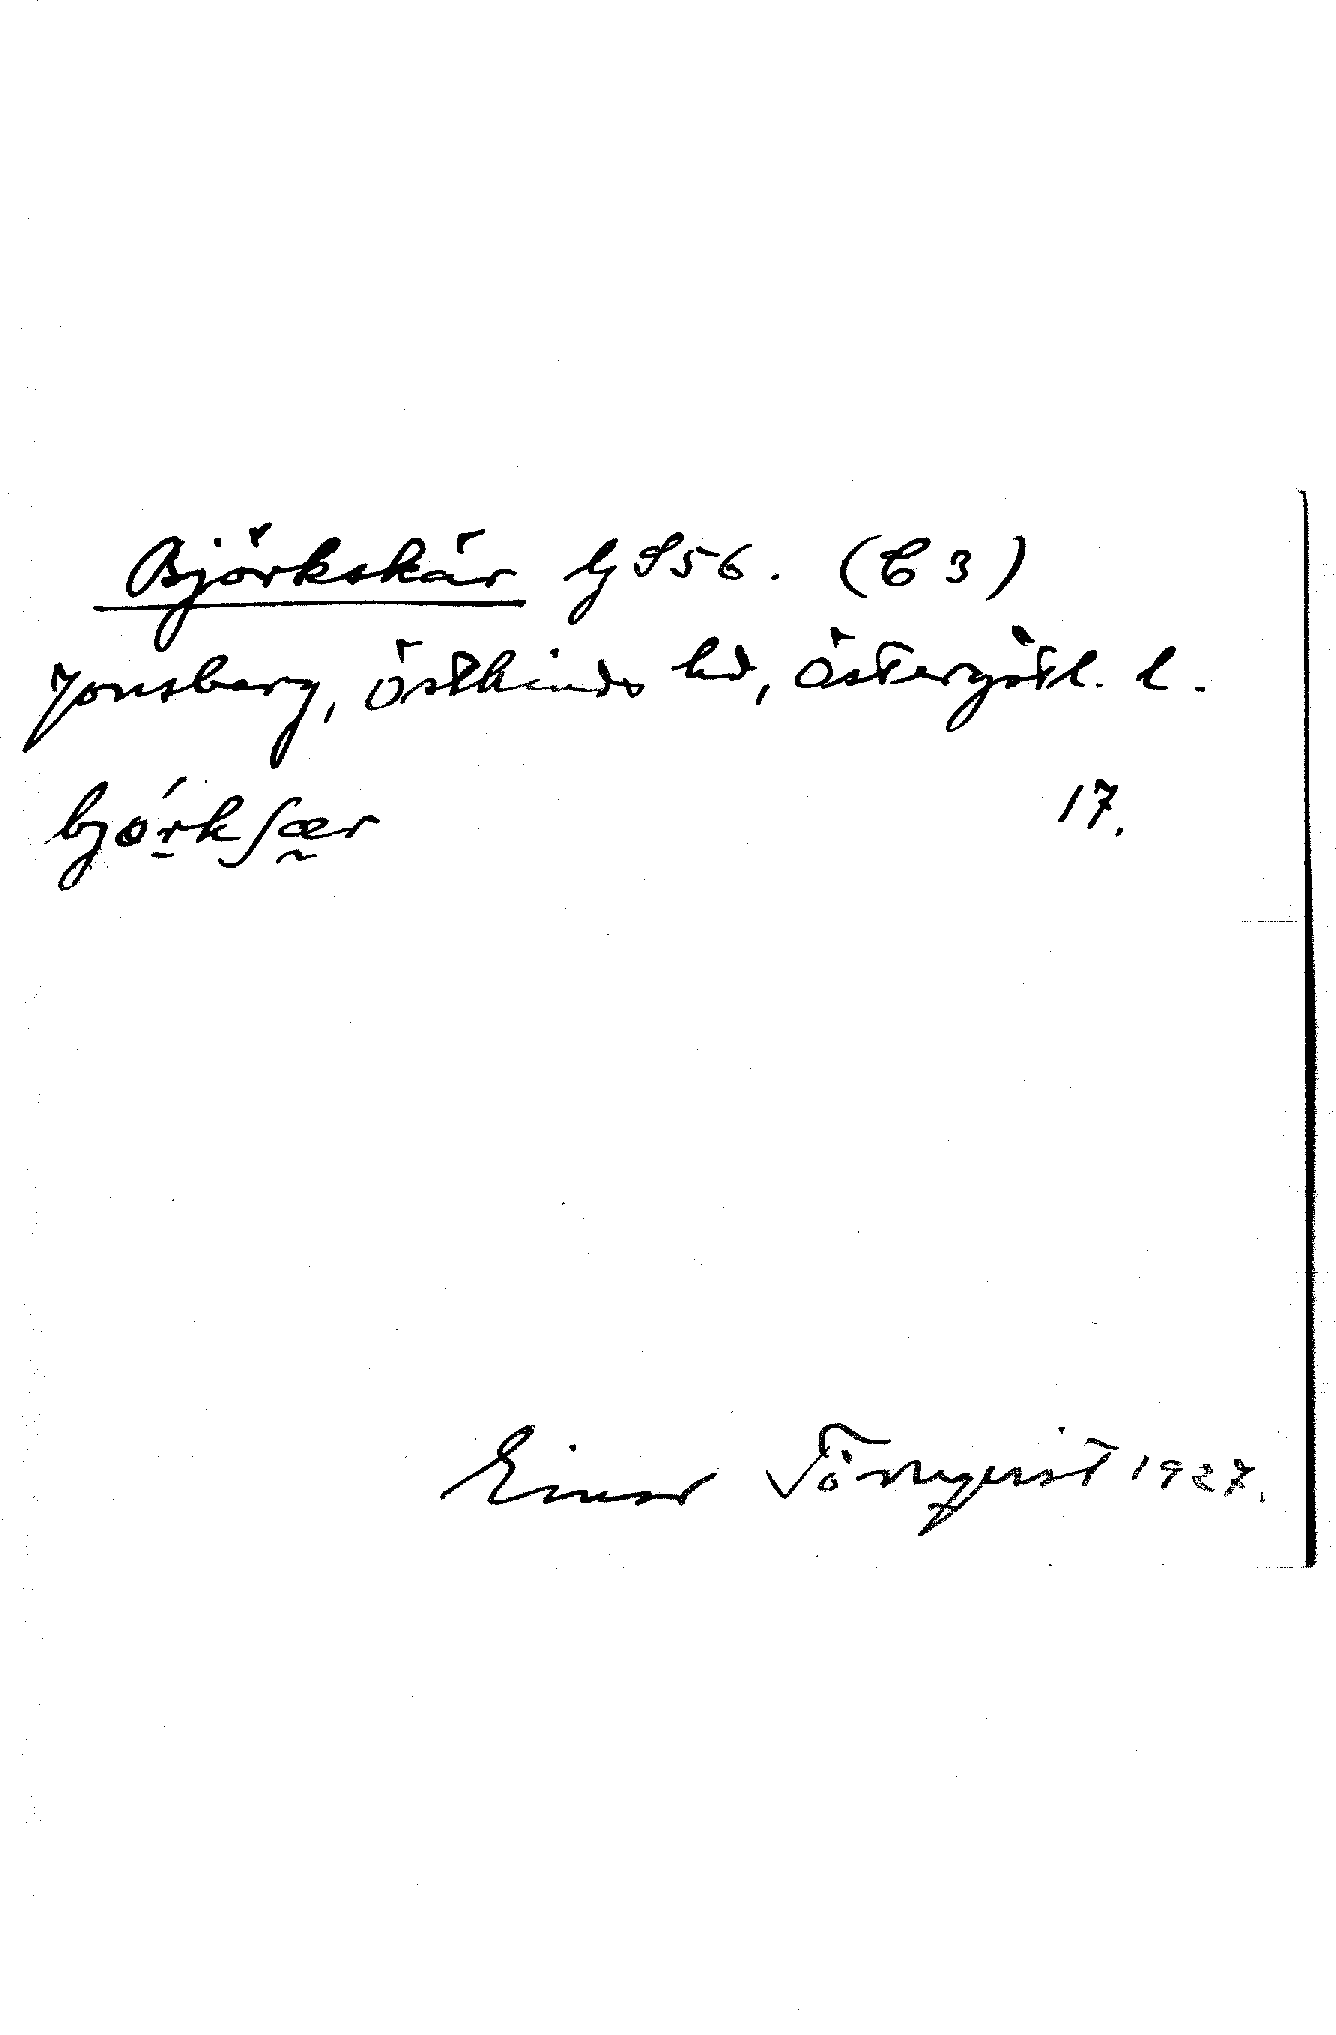 Björkskär lj S56. (C3)
Jonsberg, östkinds hd, östergötl. l.
bjǿrkʃær 17.
Einar Törnqvist 1927.